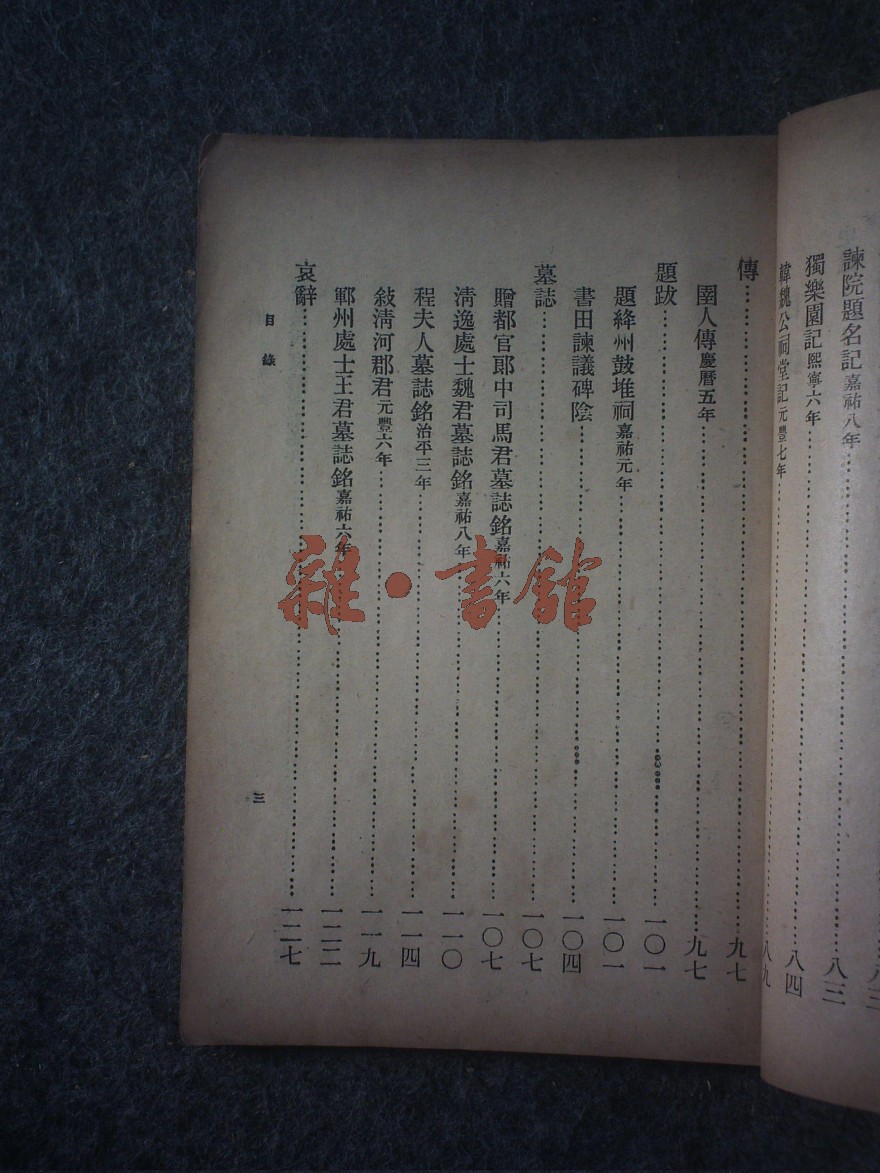 諫院題名記嘉祐八年……八三
獨樂園記熙寧六年……八四
韓魏公祠堂記元豐七年……八九
傳……九七
圉人傳慶曆五年……九七
題跋……一〇一
題絳州鼓堆祠嘉祐元年……一〇一
書田諫議碑陰……一〇四
墓誌……一〇七
贈都官郎中司馬君墓誌銘嘉祐六年……一〇七
淸逸處士魏君墓誌銘嘉祐八年……一一〇
程夫人墓誌銘治平三年……一一四
敍淸河郡君元豐六年……一一九
鄆州處士王君墓誌銘嘉祐六年……一二二
哀辭……一二七
目錄
三
雜·書館